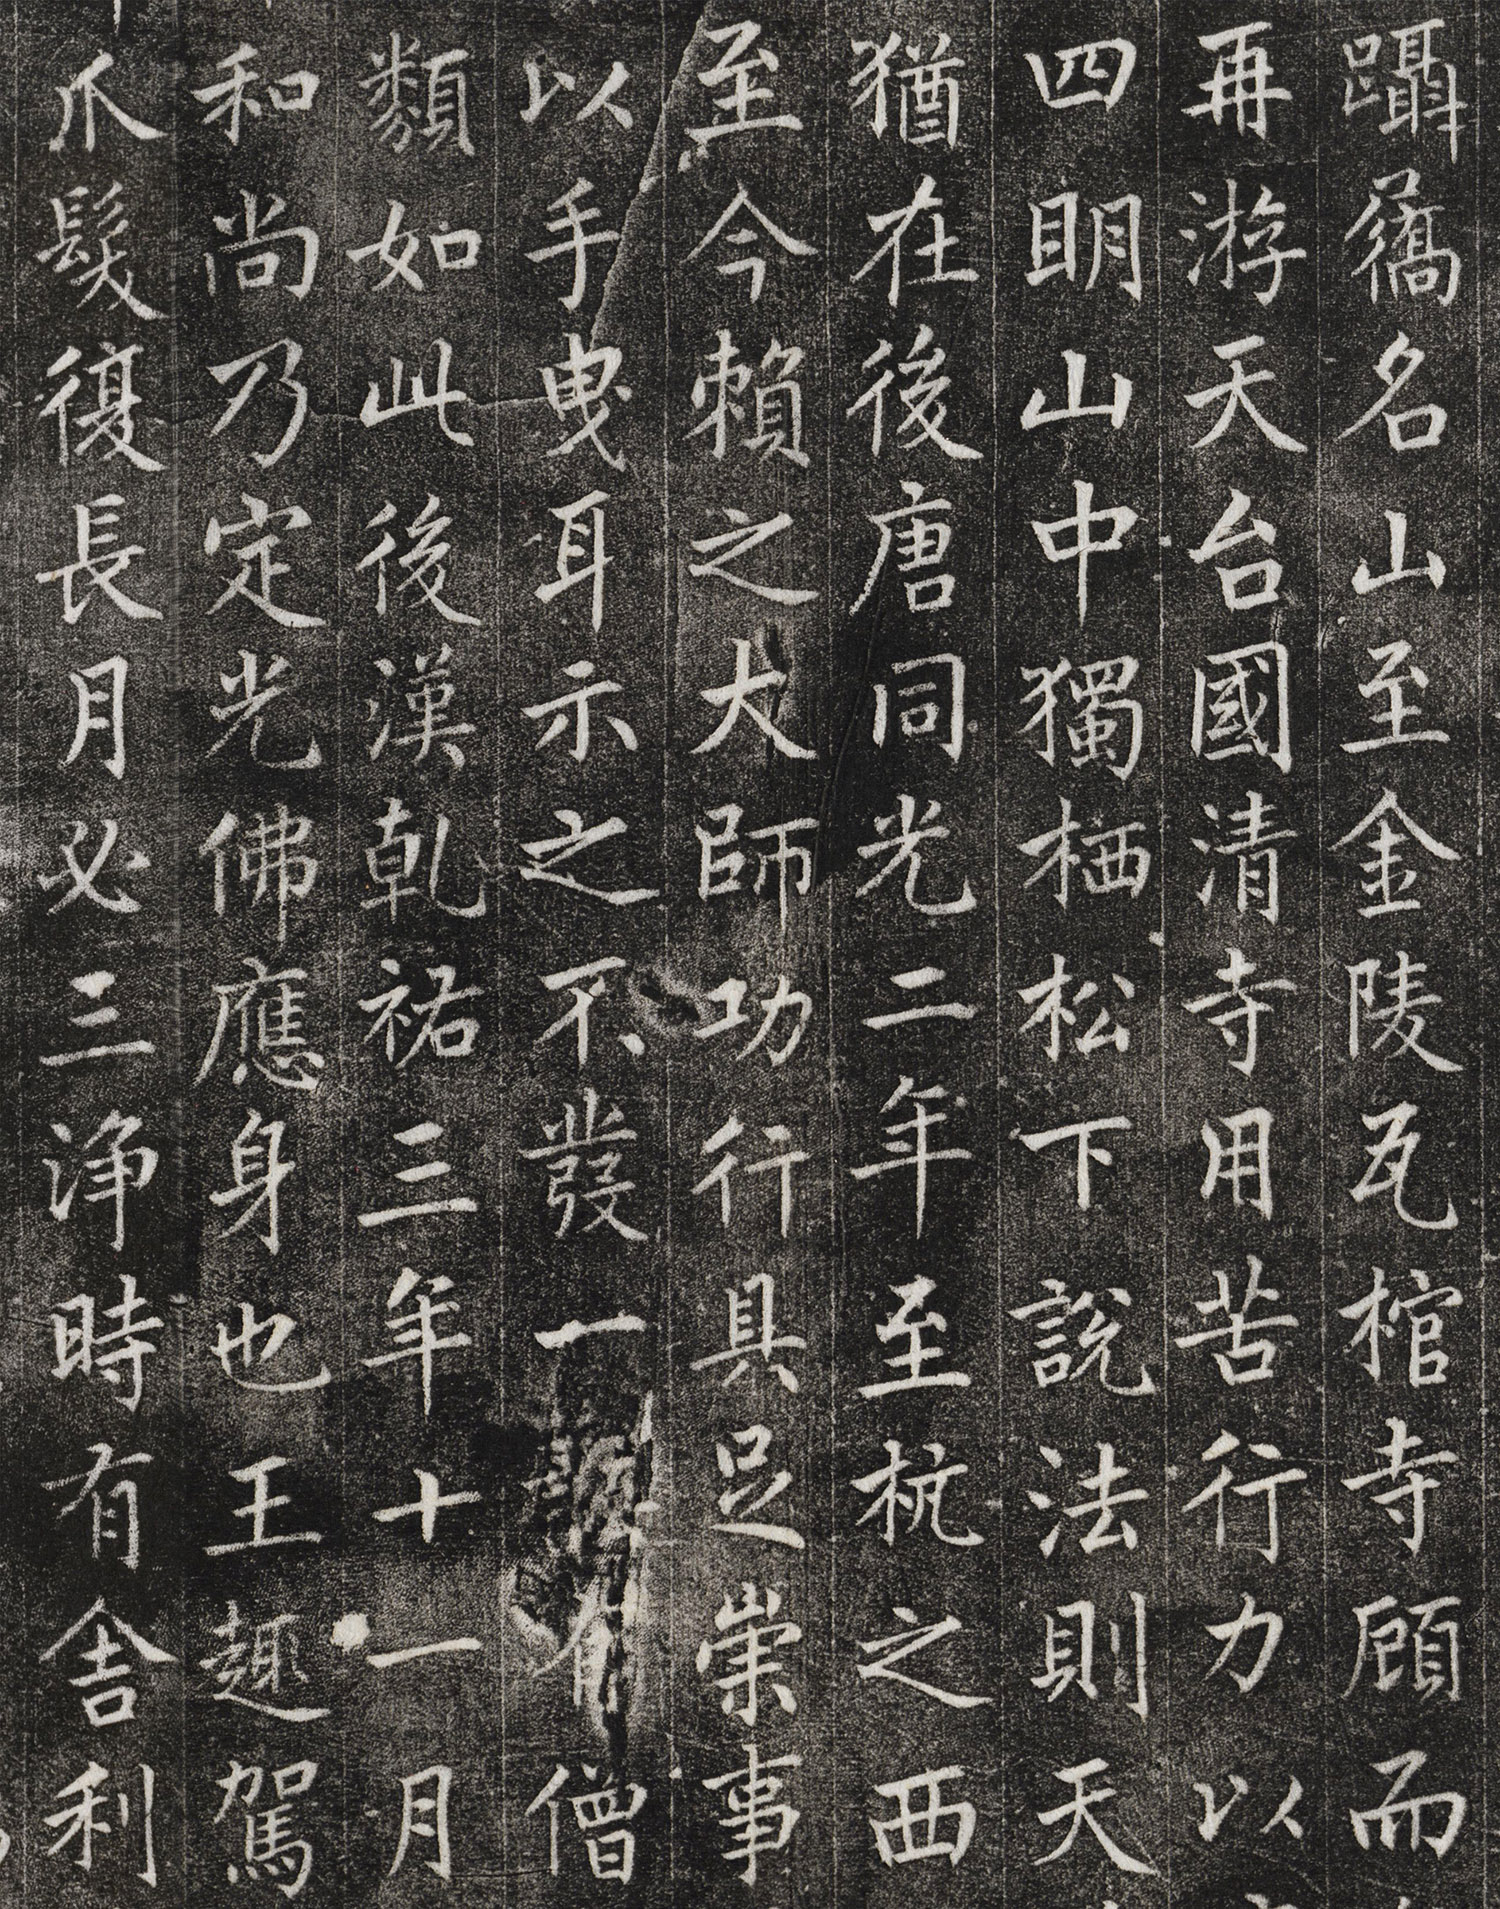 躡蹻名山至金陵瓦棺寺顧而
再游天台國清寺用苦行力以
四明山中獨栖松下說法則天
猶在後唐同光二年至杭之西
至今賴之大師功行具足崇事
以手曳耳示之不發一有僧
類如此後漢乾祐三年十一月
和尚乃定光佛應身也王趣駕
爪髮復長月必三淨時有舍利